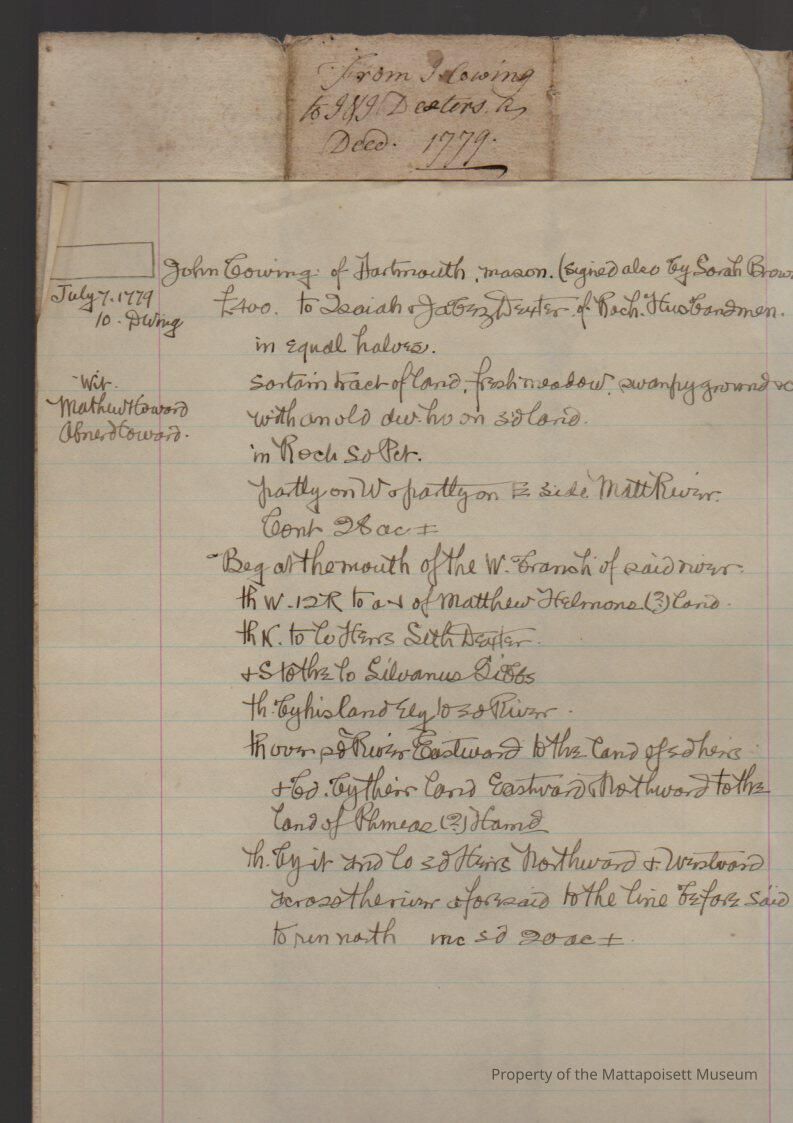 From J. Cowing
to I & J Dexters.
Deed. 1779.
John Cowing of Dartmouth, mason. (signed also by Sarah Brow
July 7. 1779
£400. to Isaiah & Jabez Dexter of Roch. Husbandmen.
10. DWing
in equal halves.
Wit.
sartain tract of land, fresh meadow, swampy ground &
Mathew Howard
with an old dw. ho on sd land.
Abner Howard.
in Roch So Pct.
partly on W & partly on E side Matt River.
Cont 28 ac ±
Beg at the mouth of the W. branch of said river
th W. 12R to a of Matthew Helmons (?) land.
th N. to lo Heirs Seth Dexter
+ S to the lo Silvanus Gibbs
th. by his land Ely to sd River.
th over sd River Eastward to the land of sd heirs
+ bd. by their land Eastward & Northward to the
land of Phineas (?) Hamd
th. by it and lo sd Heirs Northward & Westward
across the river aforesaid to the line before said
to run north inc sd 20 ac ±
Property of the Mattapoisett Museum